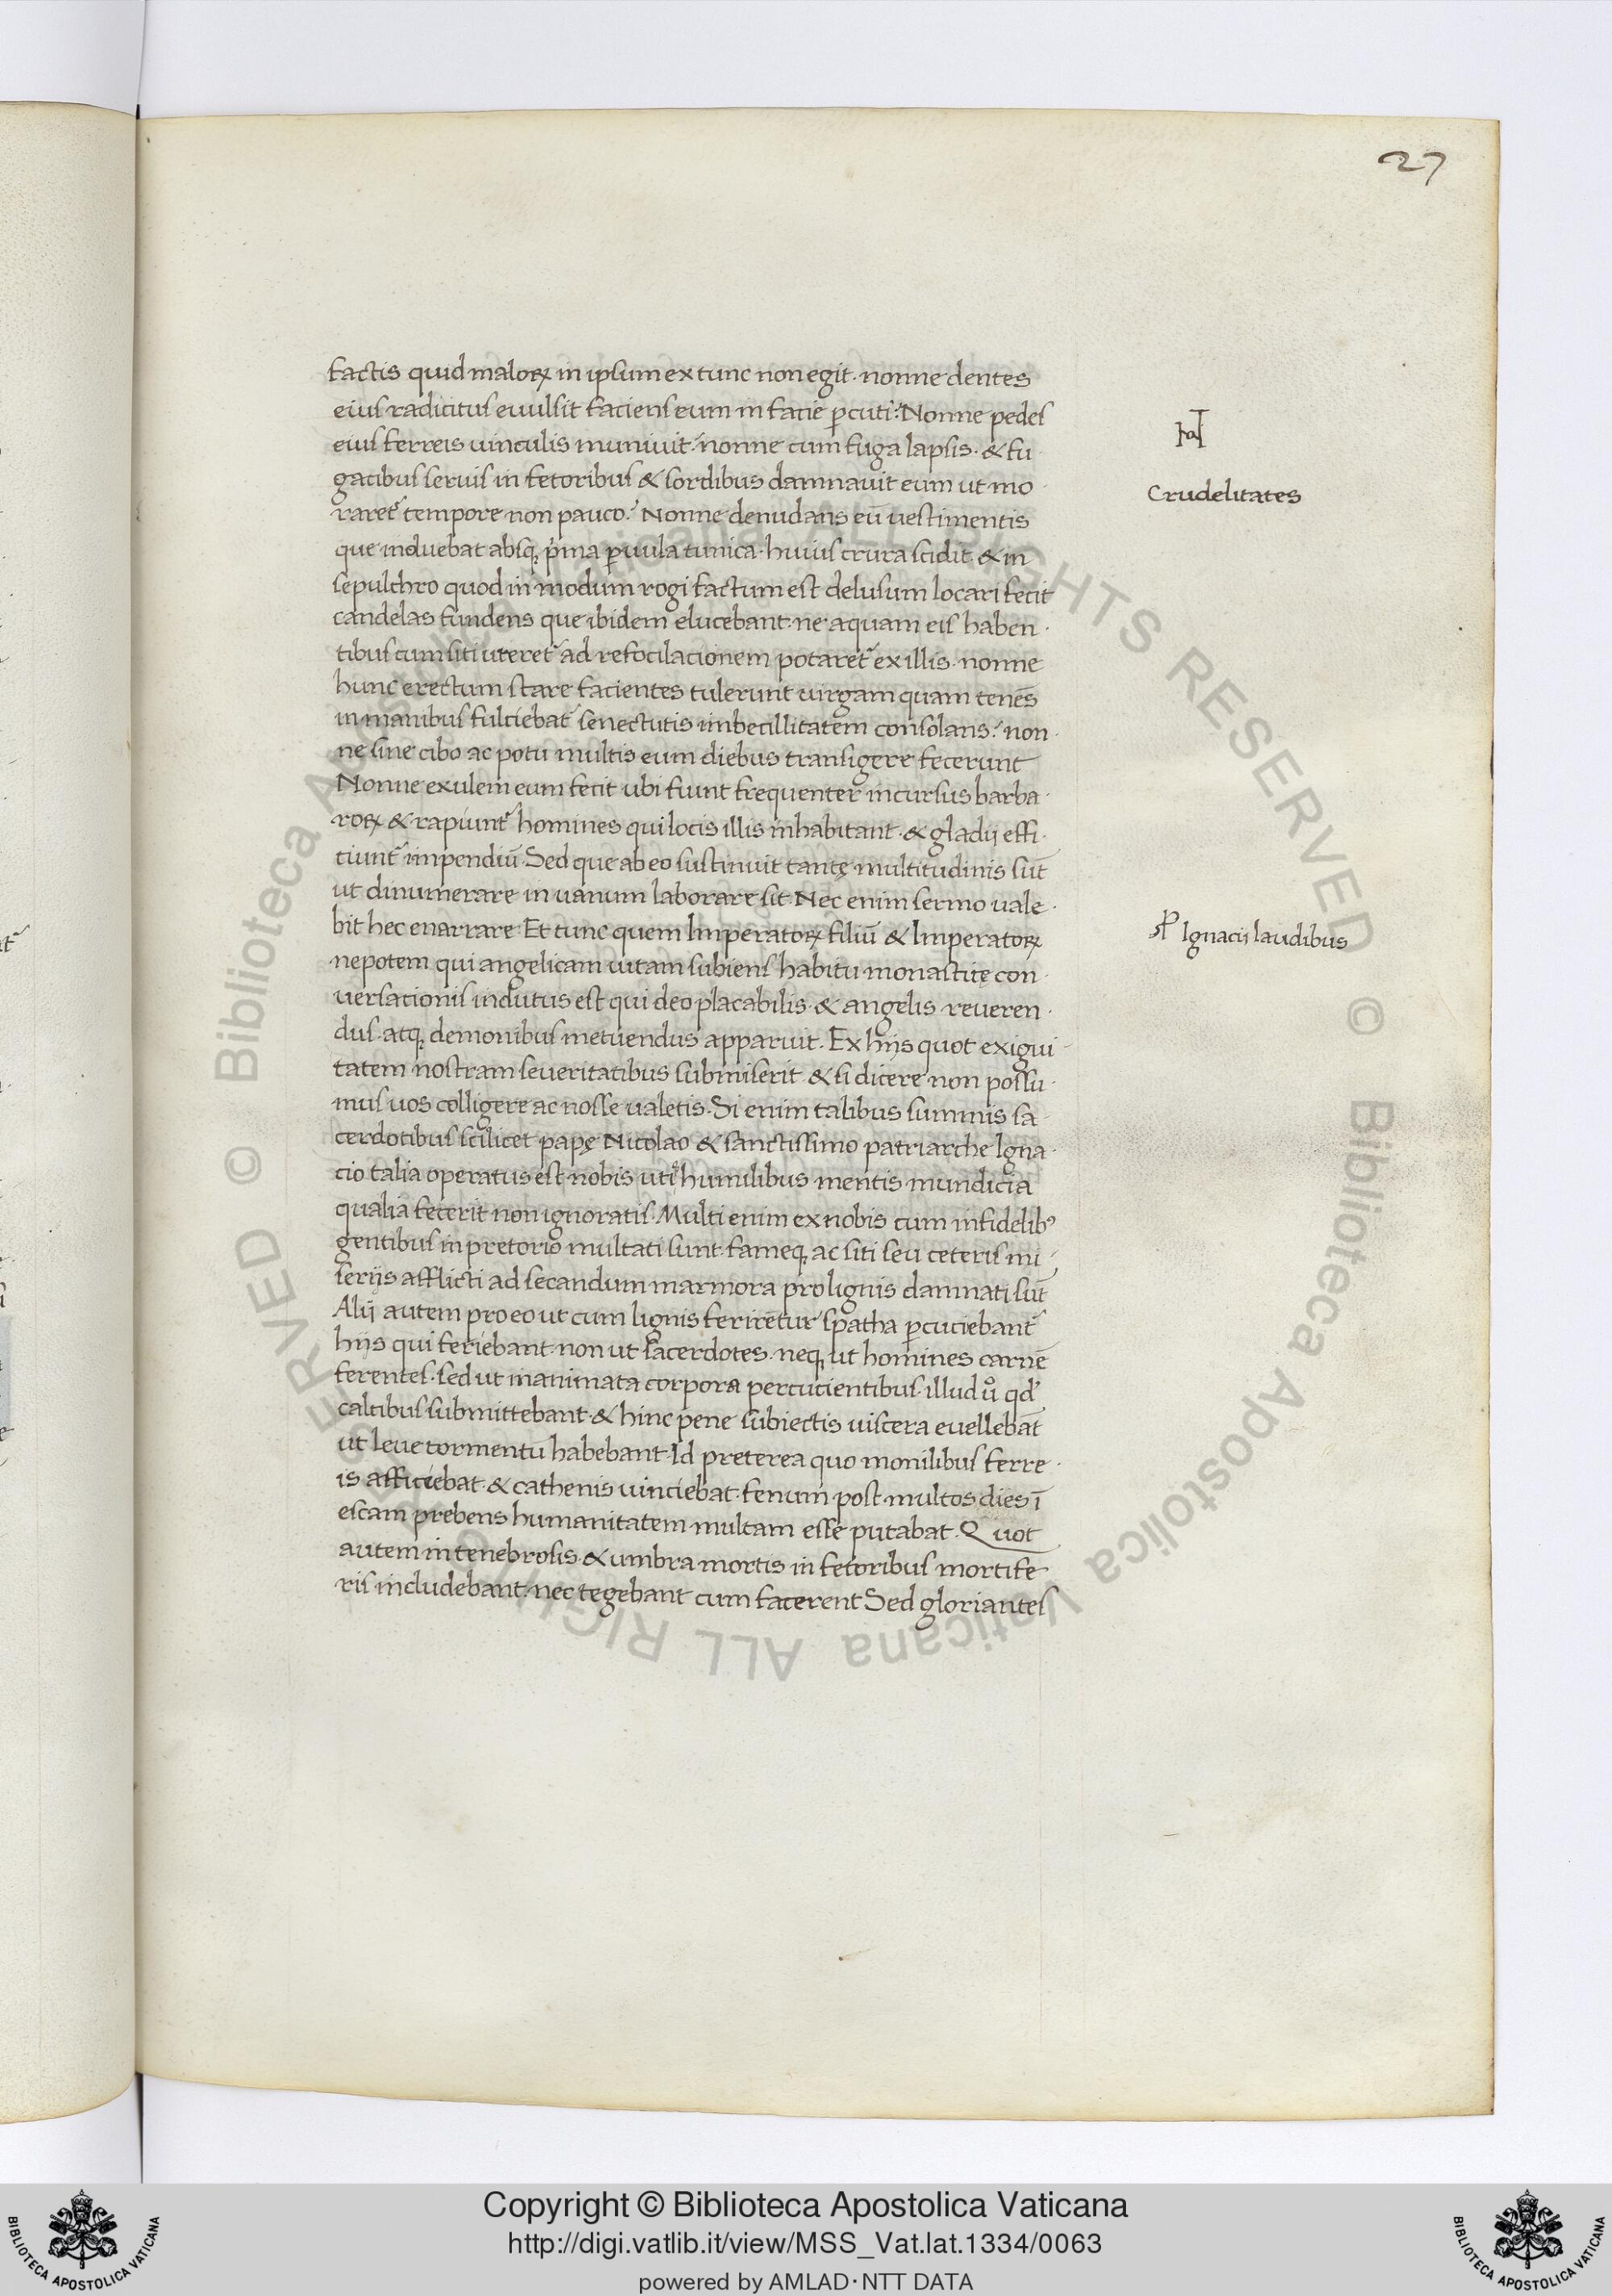 27
factis quid maloꝝ in ipsum ex tunc non egit · nonne dentes
eius radicitus euulsit faciens eum in facie ꝑcuti? Nonne pedes
eius ferreis uinculis muniuit? nonne cum fuga lapsis · & fu
gatibus seruis in fetoribus & sordibus damnauit eum ut mo
raret᷑ tempore non pauco? Nonne denudans eū uestimentis
que induebat absq; p̄ma ꝑuula tunica · huius crura scidit · & in
sepulchro quod in modum rogi factum est delusum locari fecit
candelas fundens que ibidem elucebant · ne aquam eis haben
tibus cum siti ureret᷑ ad refocilacionem potaret᷑ ex illis · nonne
hunc erectum stare facientes tulerunt uirgam quam tenēs
in manibus fulciebat᷑ senectutis imbecillitatem consolans? non
ne sine cibo ac potu multis eum diebus transigere fecerunt
Nonne exulem eum fecit ubi fiunt frequenter incursus barba
roꝝ & rapiunt᷑ homines qui locis illis inhabitant · & gladij effi
tiunt᷑ impendiū · Sed que ab eo sustinuit tantę multitudinis sūt
ut dinumerare in uanum laborare sit · Nec enim sermo uale
bit hec enarrare · Et tunc quem Imperatoꝝ filiū & Imperatoꝝ
nepotem qui angelicam uitam subiens habitu monasticę con
uersationis indutus est qui deo placabilis · & angelis · reueren
dus · atq; demonibus metuendus apparuit · Ex hijs quot exigui
tatem nostram seueritatibus submiserit · & si dicere non possu
mus uos colligere ac nosse ualetis · Si enim talibus summis sa
cerdotibus scilicet papę Nicolao & sanctissimo patriarche Igna
cio talia operatus est nobis uti humilibus mentis mundicia
qualia fecerit non ignoratis · Multi enim ex nobis cum infidelibꝰ
gentibus in pretorio multati sunt · fameq; ac siti seu ceteris mi
serijs afflicti ad secandum marmora pro lignis damnati sūt
Alij autem pro eo ut cum lignis ferirētur spatha ꝑcuciebant᷑
hijs qui feriebant · non ut sacerdotes · neq; ut homines carnē
ferentes · sed ut inanimata corpora percucientibus · illud ů qd̛
caltibus submittebant · & hinc pene subiectis uiscera euellebāt
ut leue tormentū habebant · Id preterea quo monilibus ferre
is afficiebat · & cathenis uinciebat · fenum post multos dies ī
escam prebens humanitatem multam esse putabat · Quot
autem in tenebrosis · & umbra mortis in fetoribus mortife
ris includebant · nec tegebant cum facerent Sed gloriantes
Crudelitates
Ignacij laudibus
© Biblioteca Apostolica Vaticana ALL RIGHTS RESERVED © Biblioteca Apostolica Vaticana ALL RIGHTS RESERVED
Copyright © Biblioteca Apostolica Vaticana
http://digi.vatlib.it/view/MSS_Vat.lat.1334/0063
powered by AMLAD · NTT DATA
BIBLIOTECA APOSTOLICA VATICANA
BIBLIOTECA APOSTOLICA VATICANA